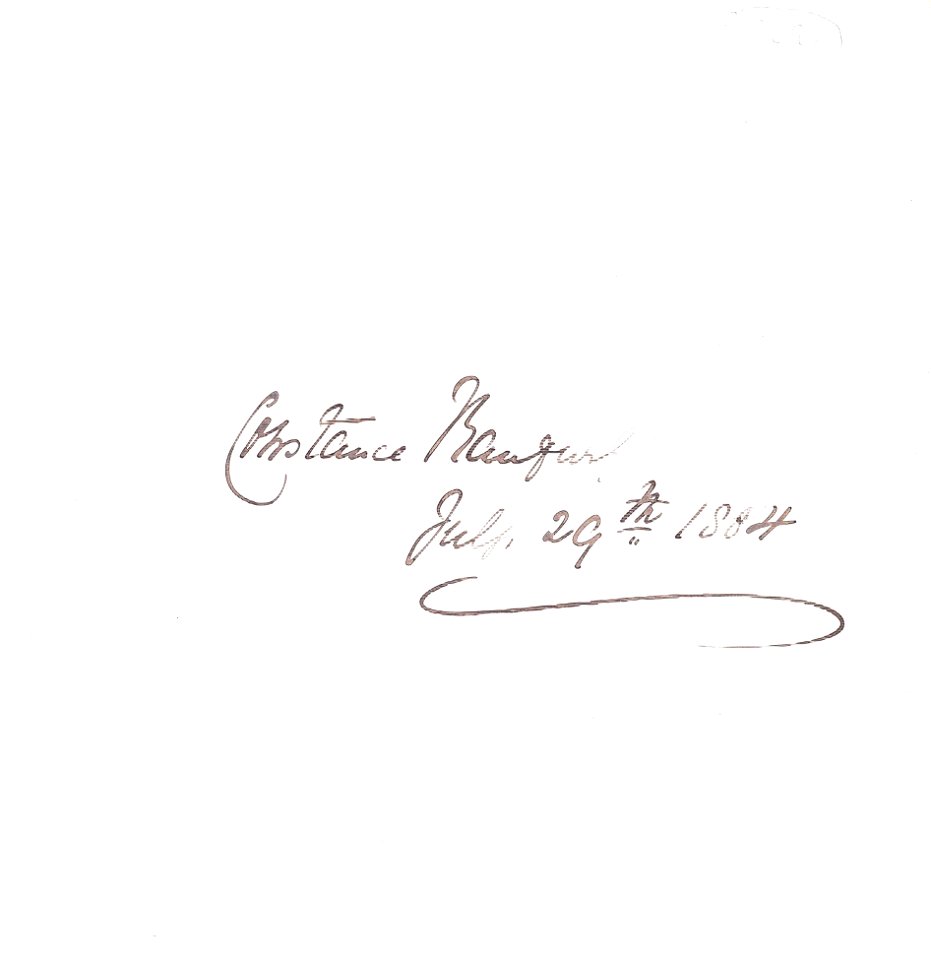 Constance
July. 29th 1884